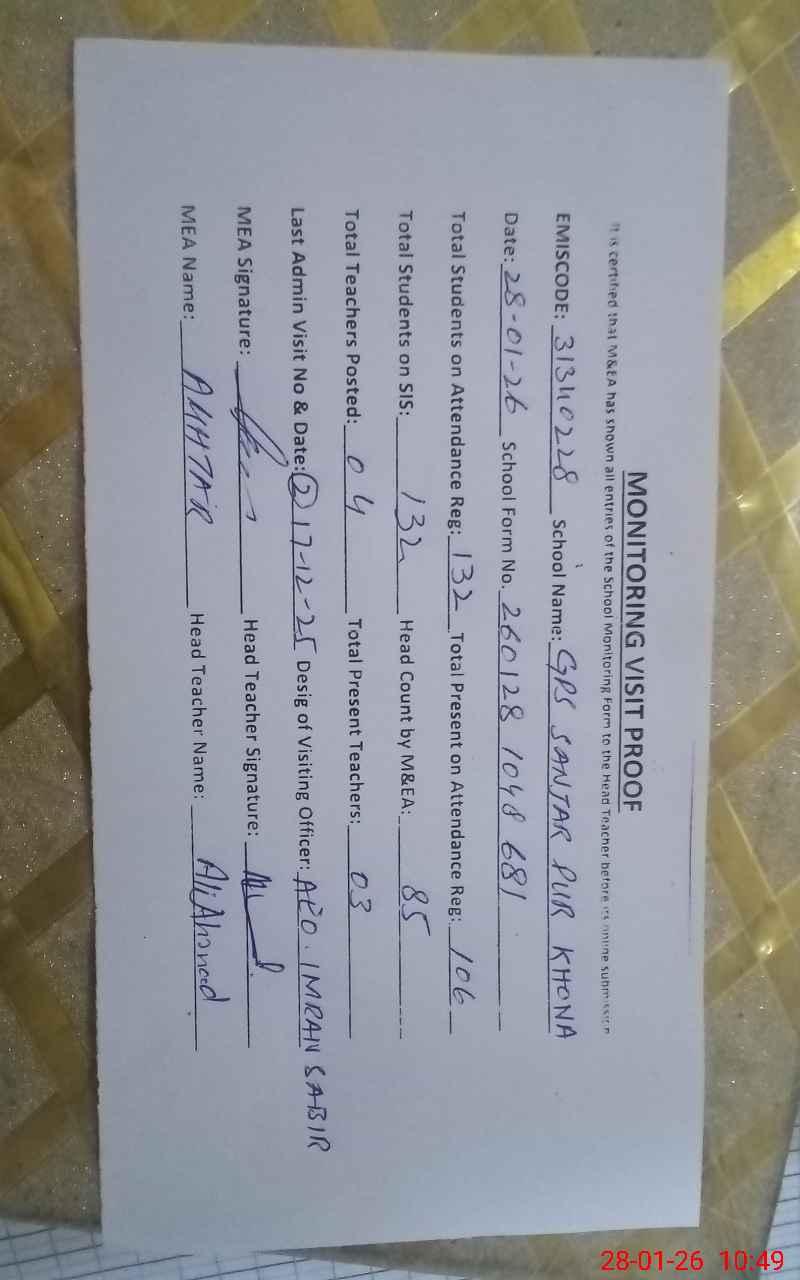 MONITORING VISIT PROOF
It is certified that M&EA has shown all entries of the School Monitoring Form to the Head Teacher before its online submission
EMISCODE: 31340228 School Name: GPS SANTAR PUR KHONA
Date: 28-01-26 School Form No. 260128 1048 681
Total Students on Attendance Reg: 132 Total Present on Attendance Reg: 106
Total Students on SIS: 132 Head Count by M&EA: 85
Total Teachers Posted: 04 Total Present Teachers: 03
Last Admin Visit No & Date: (2) 17-12-25 Desig of Visiting Officer: AEO. IMRAN SABIR
MEA Signature: Head Teacher Signature:
MEA Name: Head Teacher Name: Ali Ahmad
28-01-26 10:49